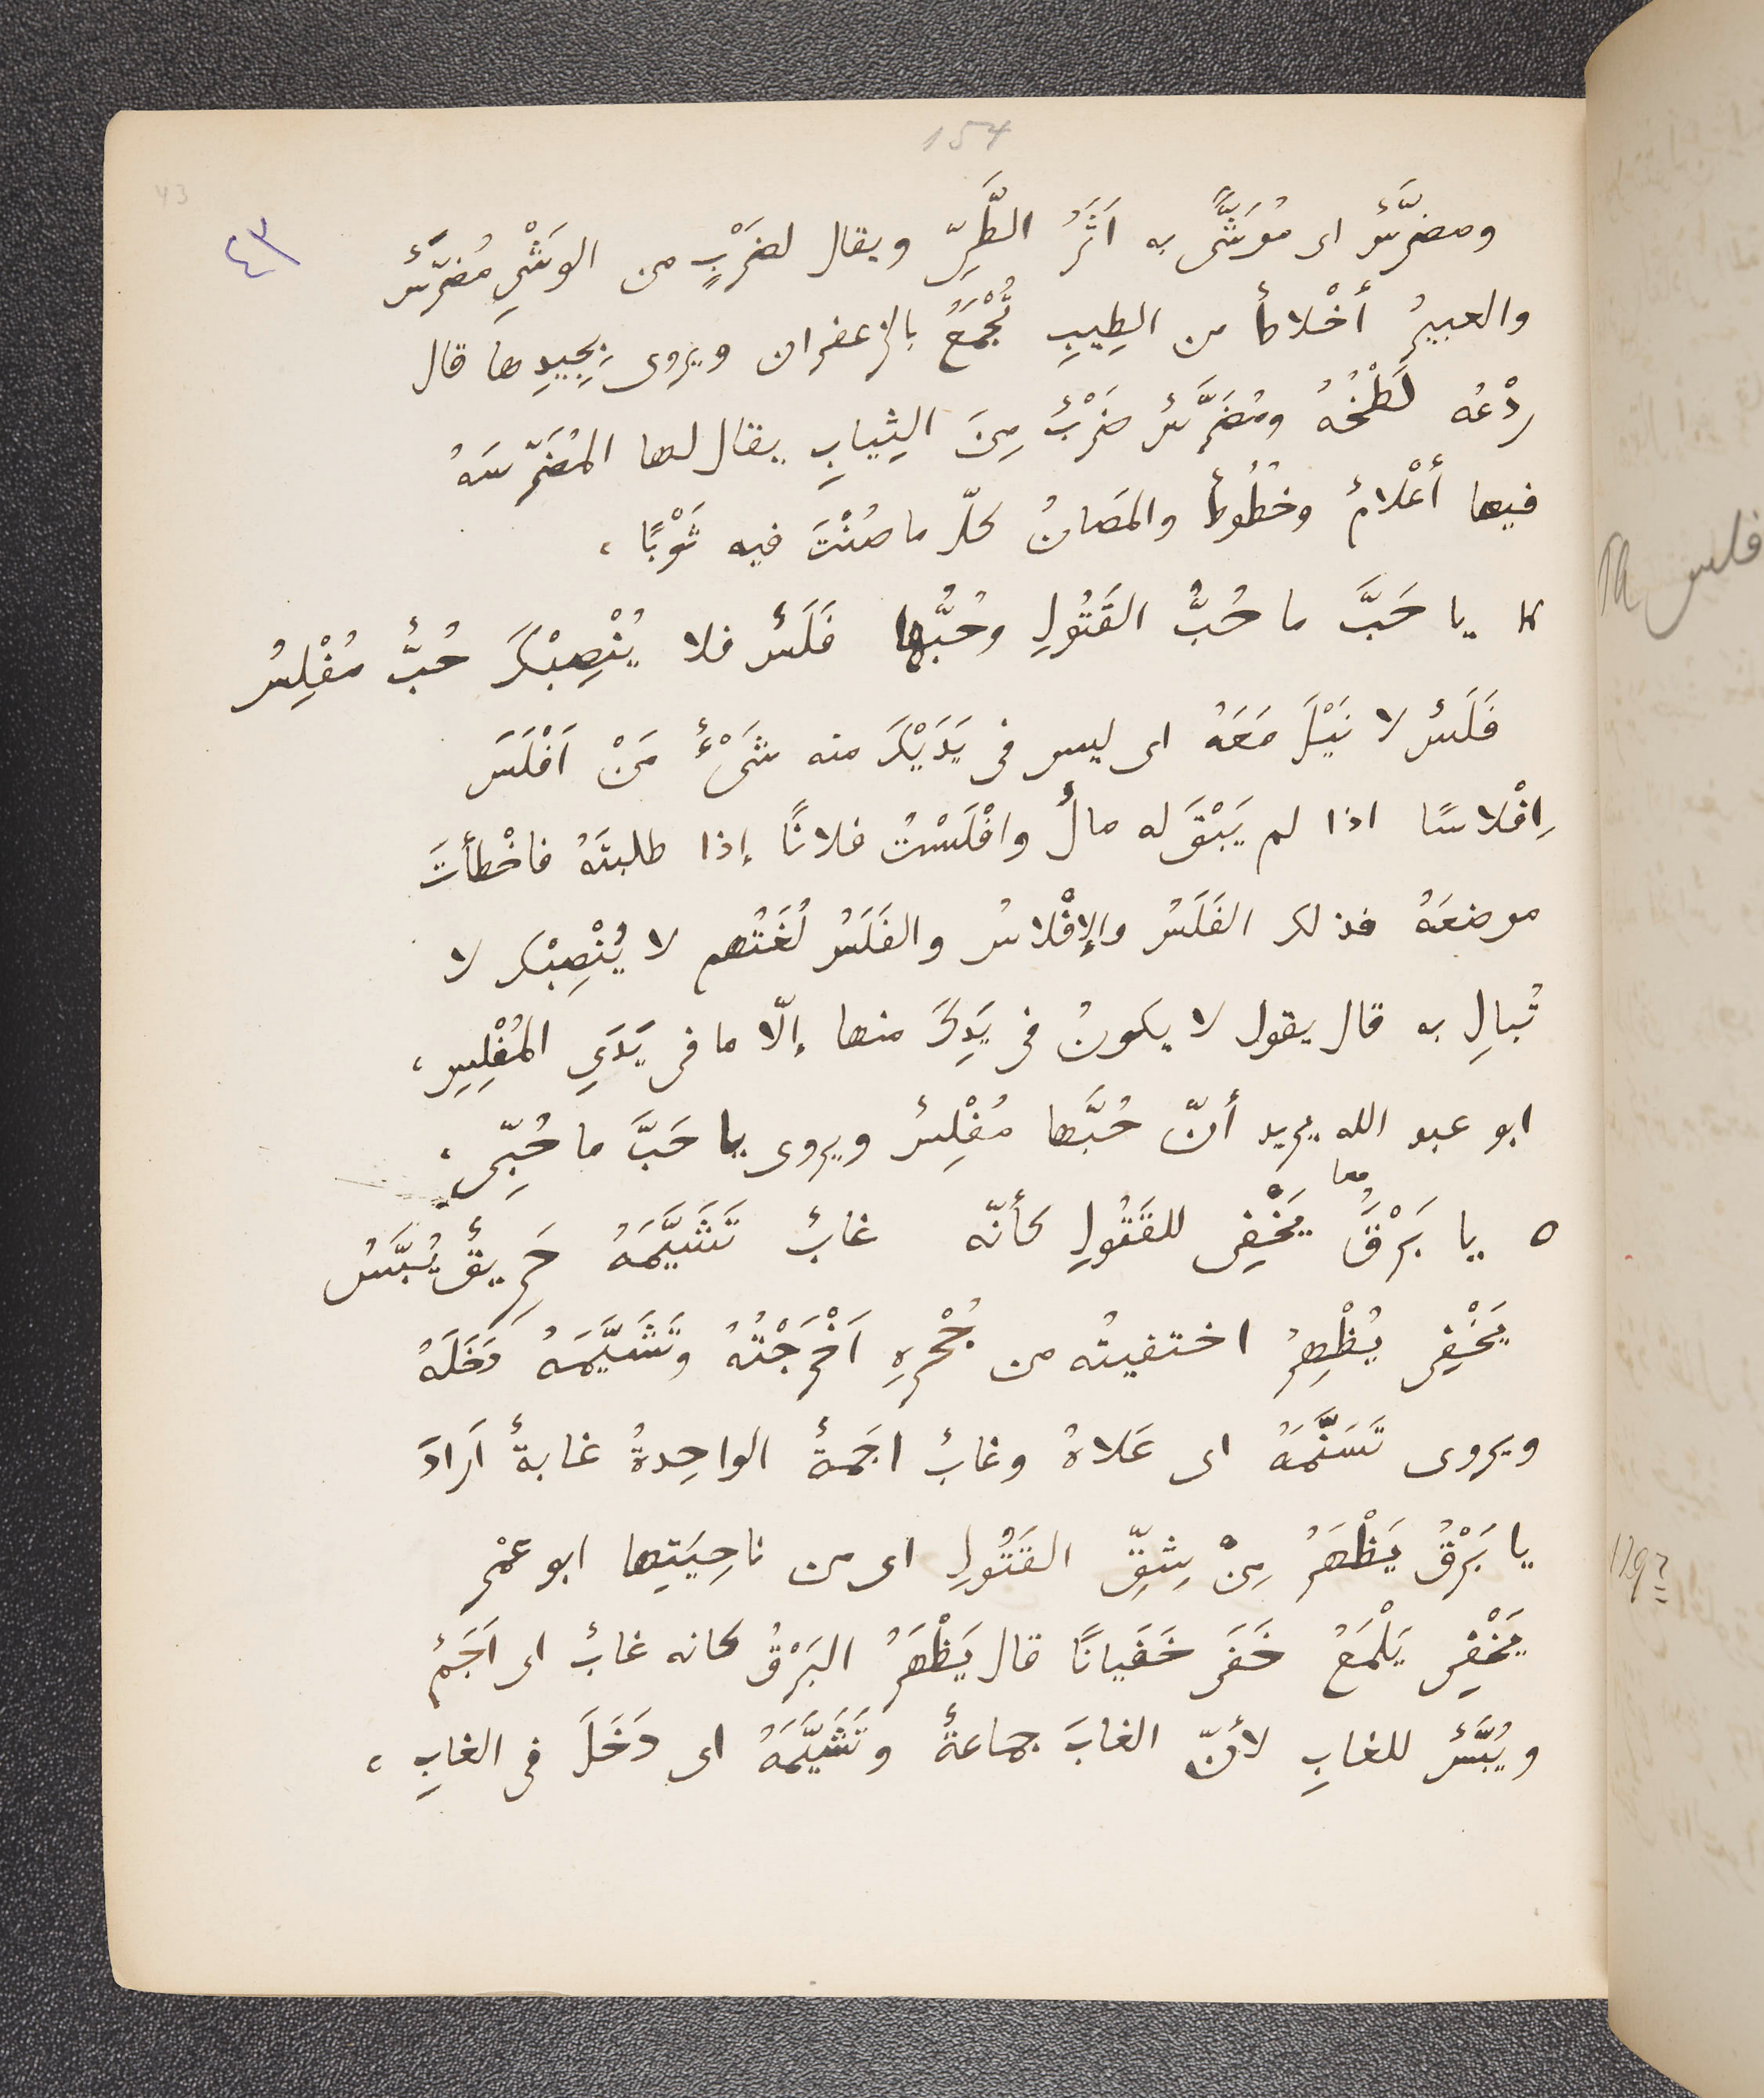 154
43
٤٣
ومضرَّسٌ اى مُوَشًّى به اَثَرُ الطَّىِّ ويقال لضَرْبٍ من الوَشْىِ مُضَرَّسٌ
والعبيرُ أخْلاطٌ من الطِيبِ تُجْمَعُ بالزعفران ويروى بِجِيدِها قال
رَدْعُه لَطْخُهُ ومُضَرَّسٌ ضَرْبٌ مِنَ الثِيابِ يقال لها المُضَرَّسَةُ
فيها أعْلامٌ وخُطُوطٌ والمَصَانُ كلّ ما صُنْتَ فيه ثَوْبًا،
٤ يا حَبَّ ما حُبُّ القَتُولِ وحُبُّها فَلَسٌ فلا يُنْصِبْكَ حُبٌّ مُفْلِسُ
فَلَسٌ لا نَيْلَ مَعَهُ اى ليس فى يَدَيْكَ منه شَىْءٌ مَنْ اَفْلَسَ
اِفْلاسًا اذا لم يَبْقَ له مالٌ وافْلَسْتُ فلانًا إذا طلبتَهُ فاخْطأتَ
موضعَهُ فذلك الفَلَسُ والإفْلاسُ والفَلَسُ لُغَتُهم لا يُنْصِبْكَ لا
تُبالِ به قال يقول لا يكونُ فى يَدِكَ منها إلّا ما فى يَدَىِ المُفْلِسِ،
ابو عبد الله يريد أنّ حُبَّها مُفْلِسٌ ويروى يا حَبَّ ما حُبِّى،
معا
٥ يا بَرْقُ يَخْفِى للقَتُولِ كأنّه غابٌ تَشَيَّمَهُ حَرِيقٌ يُبَّسُ
يَخْفِى يُظْهِرُ اختفيتُه من جُحْرِهِ اَخْرَجْتُهُ وتَشَيَّمَهُ دَخَلَهُ
ويروى تَسَنَّمَهُ اى عَلاهُ وغابٌ اجَمةٌ الواحِدةُ غابةٌ اَرادَ
يا بَرْقُ يَظْهَرُ مِنْ شِقِّ القَتُولِ اى من ناحِيَتِها ابو عمْر
يَخْفِى يَلْمَعُ خَفَى خَفَيانًا قال يَظْهَرُ البَرْقُ كانه غابٌ اى اَجَمٌ
ويُبَّسٌ للغابِ لأنّ الغابَ جماعةٌ وتَشَيَّمَهُ اى دَخَلَ فى الغابِ،
فلس
129